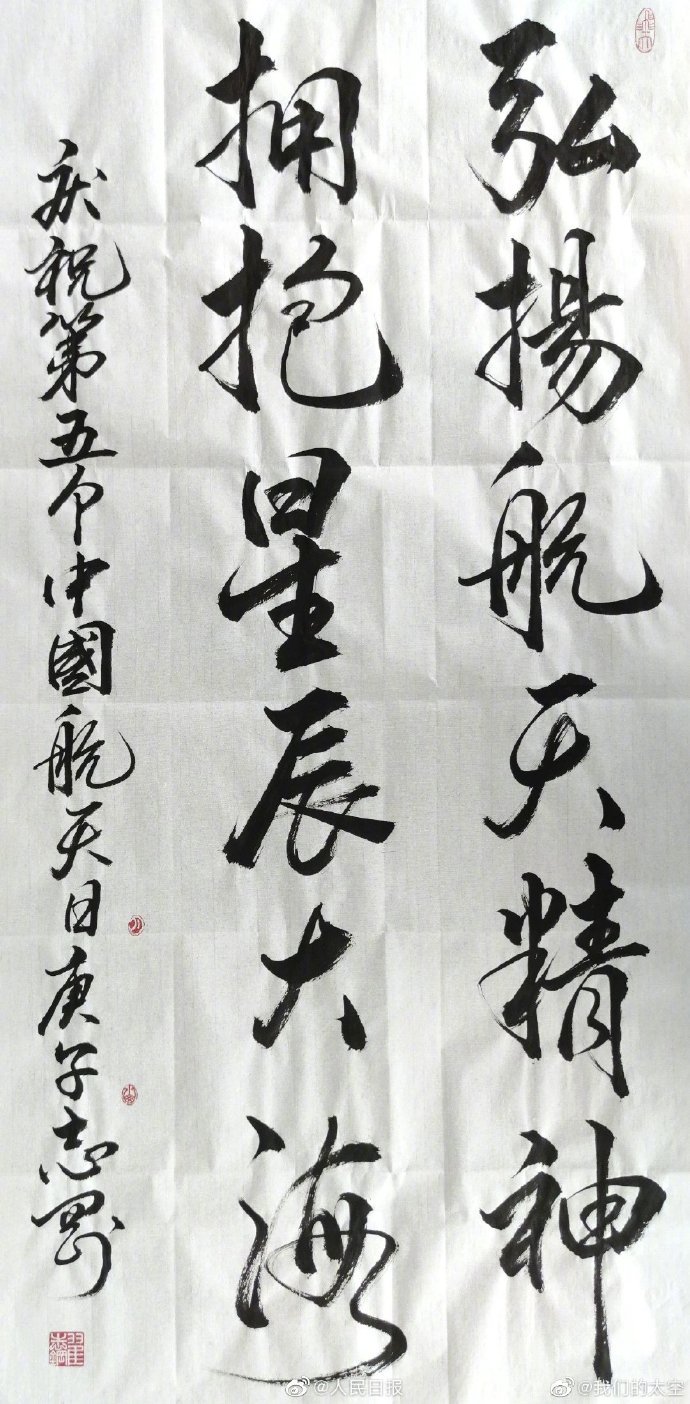 弘揚航天精神
拥抱星辰大海
庆祝第五个中國航天日庚子志罡
@人民日报
@我们的太空